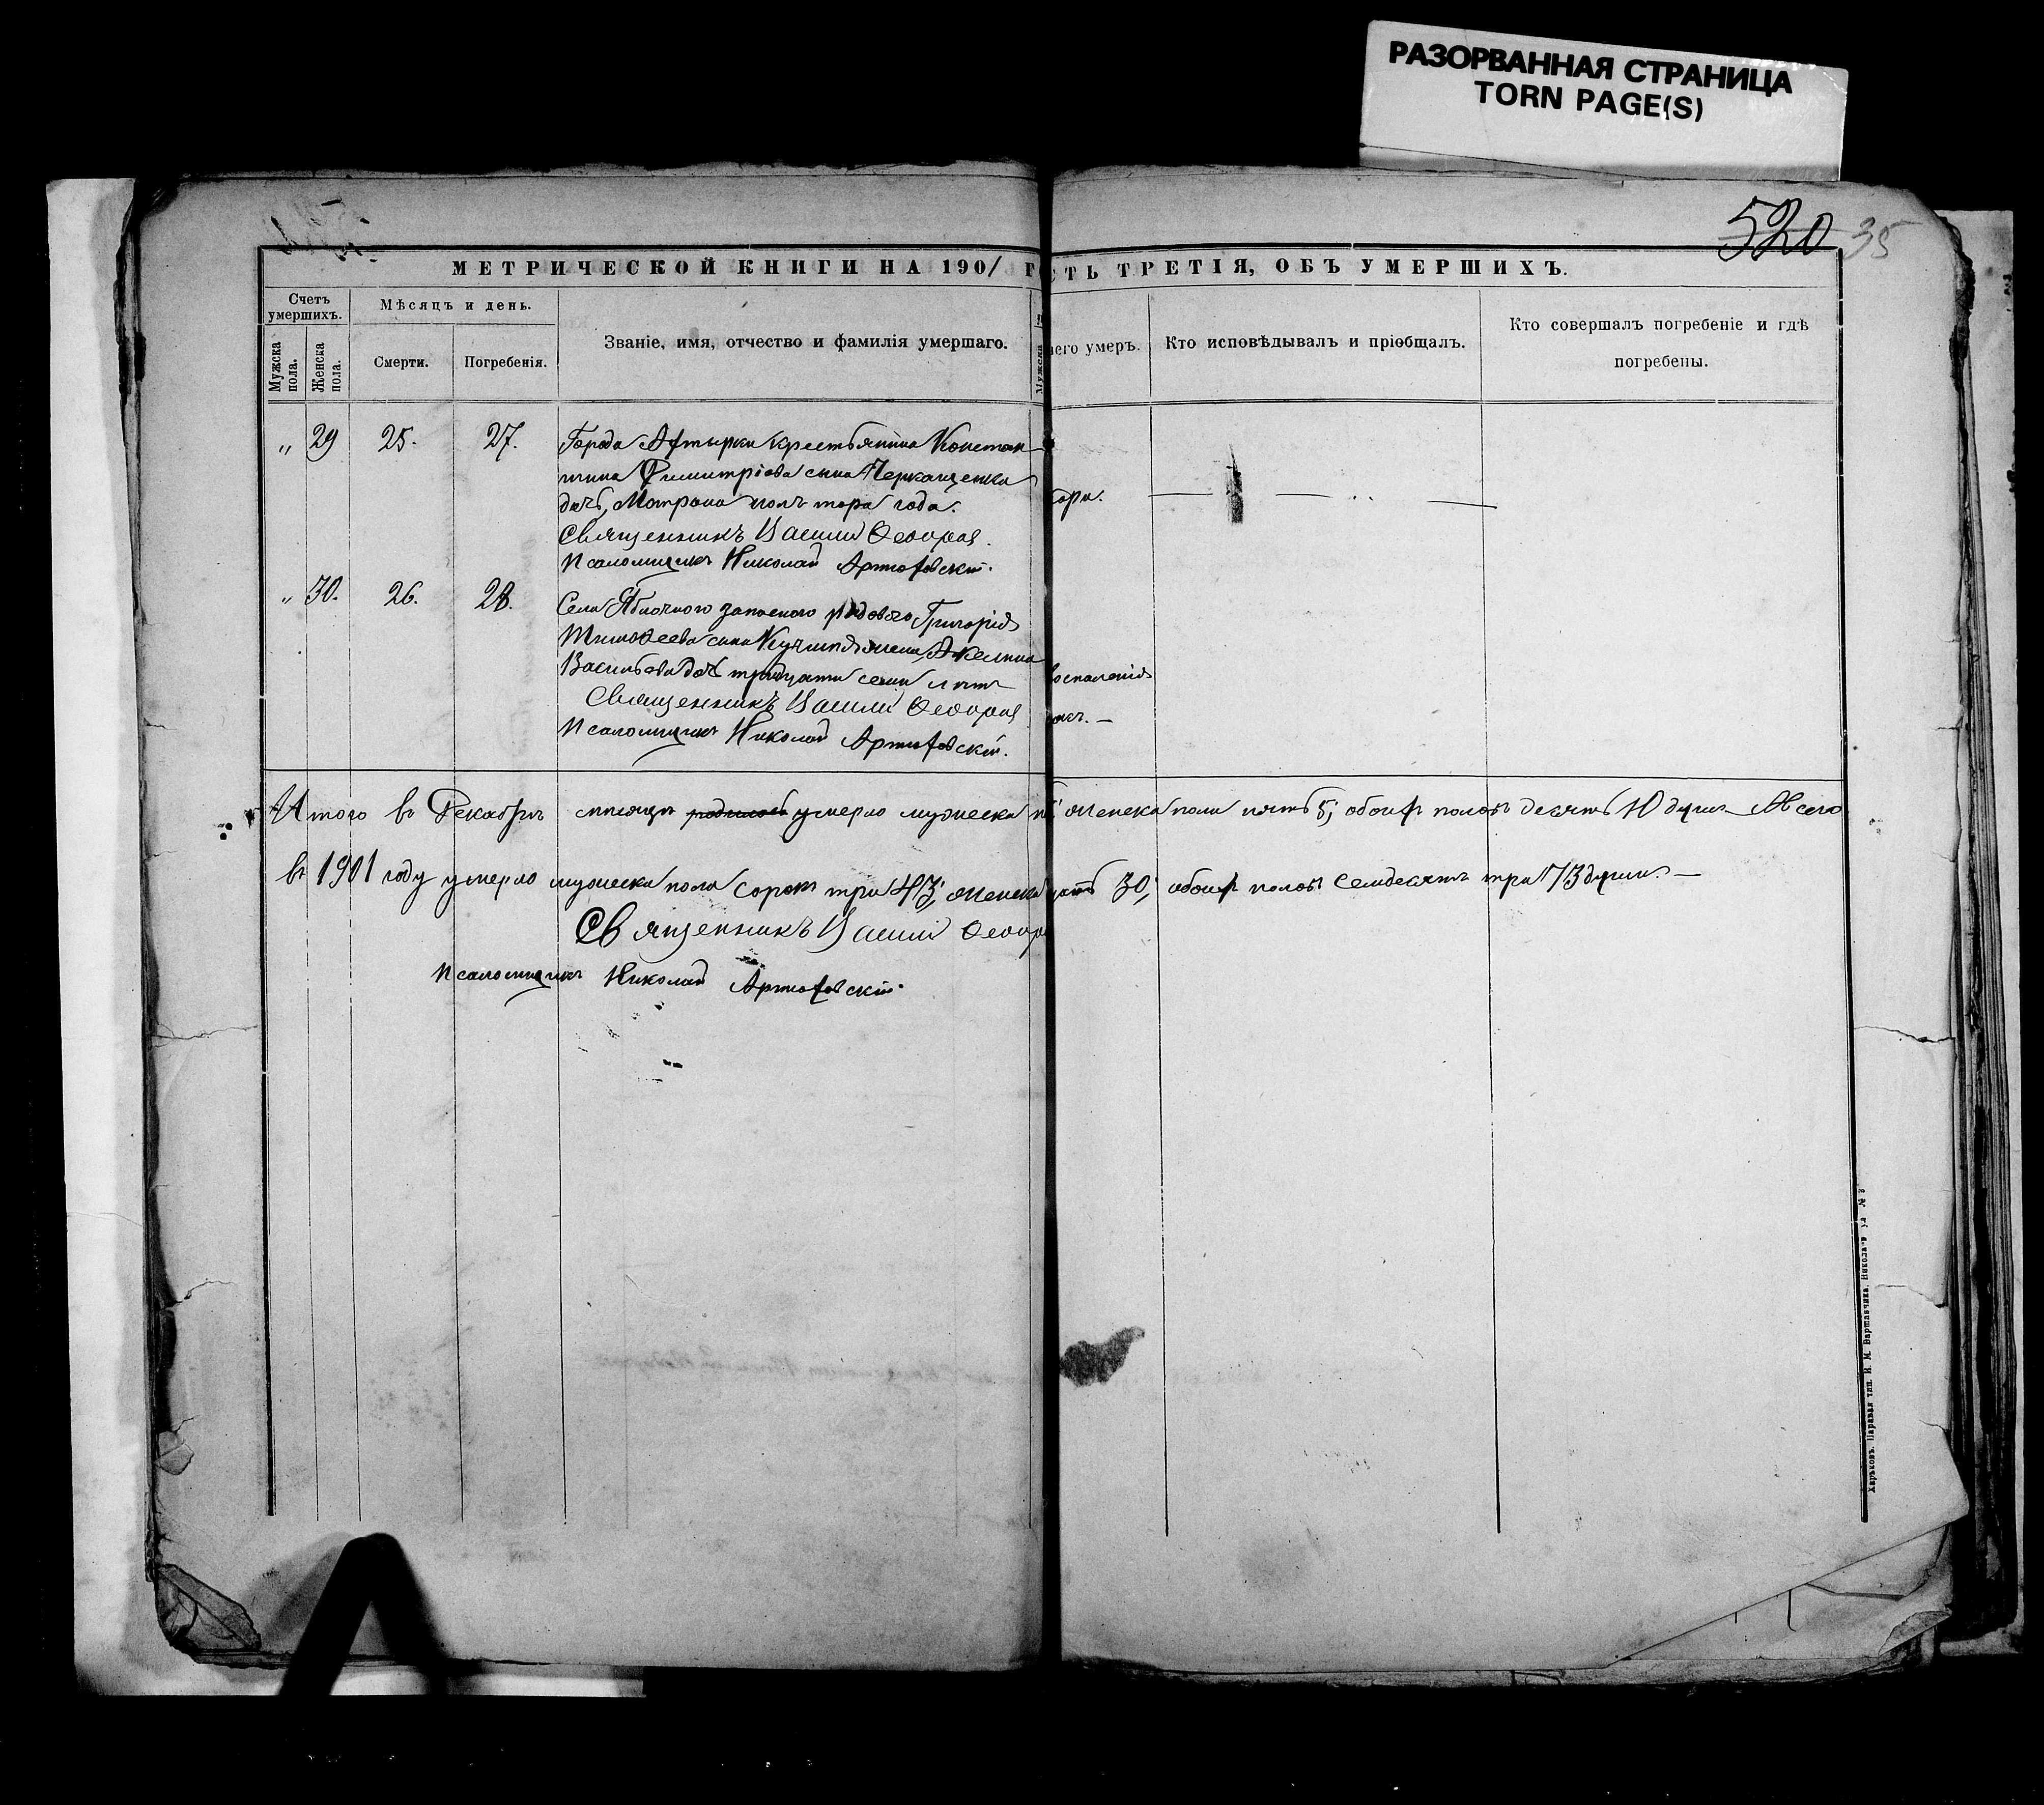 РАЗОРВАННАЯ СТРАНИЦА
TORN PAGE(S)
520 35
МЕТРИЧЕСКОЙ КНИГИ НА 1901 Г
СТЬ ТРЕТІЯ, ОБЪ УМЕРШИХЪ.
Счетъ умершихъ.
Мѣсяцъ и день.
Мужска пола.
Женска пола.
Смерти.
Погребенія.
Званіе, имя, отчество и фамилія умершаго.
Мужска
чего умеръ.
Кто исповѣдывалъ и пріобщалъ.
Кто совершалъ погребеніе и гдѣ
погребены.
„ 29 25. 27. Города Ахтырки крестьянина Констан
тина Димитріева сына Черкащенка
дочь, Матрона полтора года. кори.
Священникъ Василій Ѳеодоров
Псаломщикъ Николай Артюховскій.
„ 30. 26. 28. Села Яблочного запасного рядового Григорія
Тимоѳеева сына жена Акелина
Васильева дочь тридцати семи лѣтъ оспаленія
Священникъ Василій Ѳеодоров
Псаломщикъ Николай Артюховскій.
Итого въ Декабрѣ мѣсяцѣ родилось умерло мужеска п женска пола пять 5; обоихъ половъ десять 10 душъ А всего
въ 1901 году умерло мужеска пола сорокъ три 43; женска цать 30; обоихъ половъ семдесятъ три 73 души. —
Священникъ Василій Ѳеодор
Псаломщикъ Николай Артюховскій.
Харьковъ. Паровая тип. И. М. Варшавчика. Николаев. ул. № 8